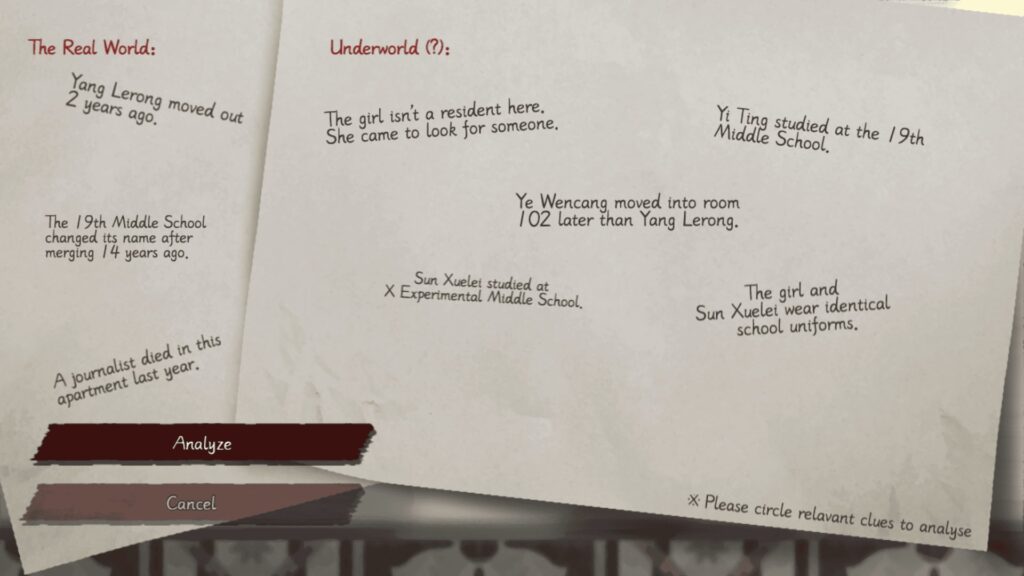 The Real World:
Yang Lerong moved out
2 years ago.
The 19th Middle School
changed its name after
merging 14 years ago.
A journalist died in this
apartment last year.
Underworld (?):
The girl isn't a resident here.
She came to look for someone.
Yi Ting studied at the 19th
Middle School.
Ye Wencang moved into room
102 later than Yang Lerong.
Sun Xuelei studied at
X Experimental Middle School.
The girl and
Sun Xuelei wear identical
school uniforms.
Analyze
Cancel
※ Please circle relavant clues to analyse